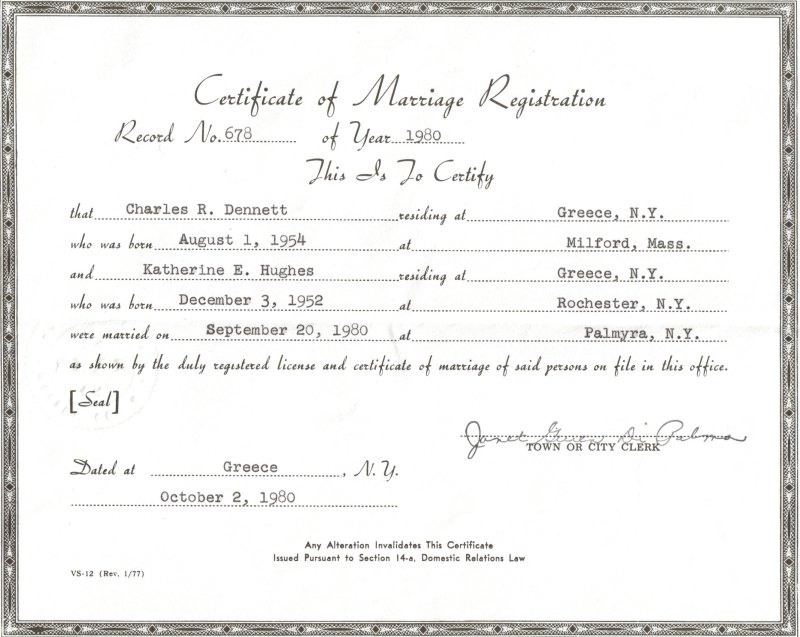 Certificate of Marriage Registration
Record No. 678 of Year 1980
This Is To Certify
that Charles R. Dennett residing at Greece, N.Y.
who was born August 1, 1954 at Milford, Mass.
and Katherine E. Hughes residing at Greece, N.Y.
who was born December 3, 1952 at Rochester, N.Y.
were married on September 20, 1980 at Palmyra, N.Y.
as shown by the duly registered license and certificate of marriage of said persons on file in this office.
[Seal]
Janet
TOWN OR CITY CLERK
Dated at Greece, N.Y.
October 2, 1980
Any Alteration Invalidates This Certificate
Issued Pursuant to Section 14-a, Domestic Relations Law
VS-12 (Rev. 1/77)